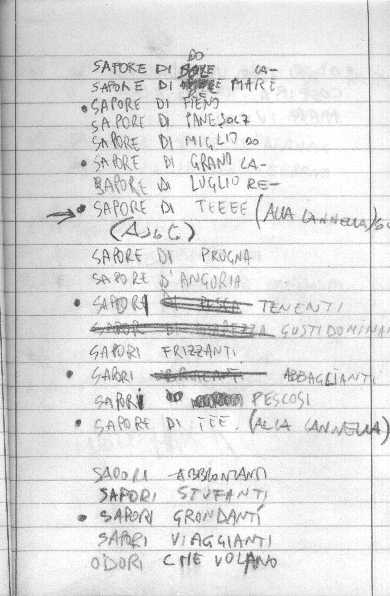 DO
SAPORE DI SALE LA-
SAPORE DI MARE
RE
• SAPORE DI FIENO
SAPORE DI PANE SOL7
SAPORE DI MIGLIO DO
• SAPORE DI GRANO LA-
SAPORE DI LUGLIO RE-
→ • SAPORE DI TEEEE (ALLA CANNELLA)
SAPORE DI PRUGNA
SAPORE D'ANGURIA
• SAPORI TENENTI
SAPOR DI GUSTI DOMINAN
SAPORI FRIZZANTI
• SAPORI ABBAGLIANTI
SAPORI PESCOSI
• SAPORE DI TEE. (ALLA CANNELLA)
SAPORI ABBRONZANTI
SAPORI STUFANTI
• SAPORI GRONDANTI
SAPORI VIAGGIANTI
ODORI CHE VOLANO